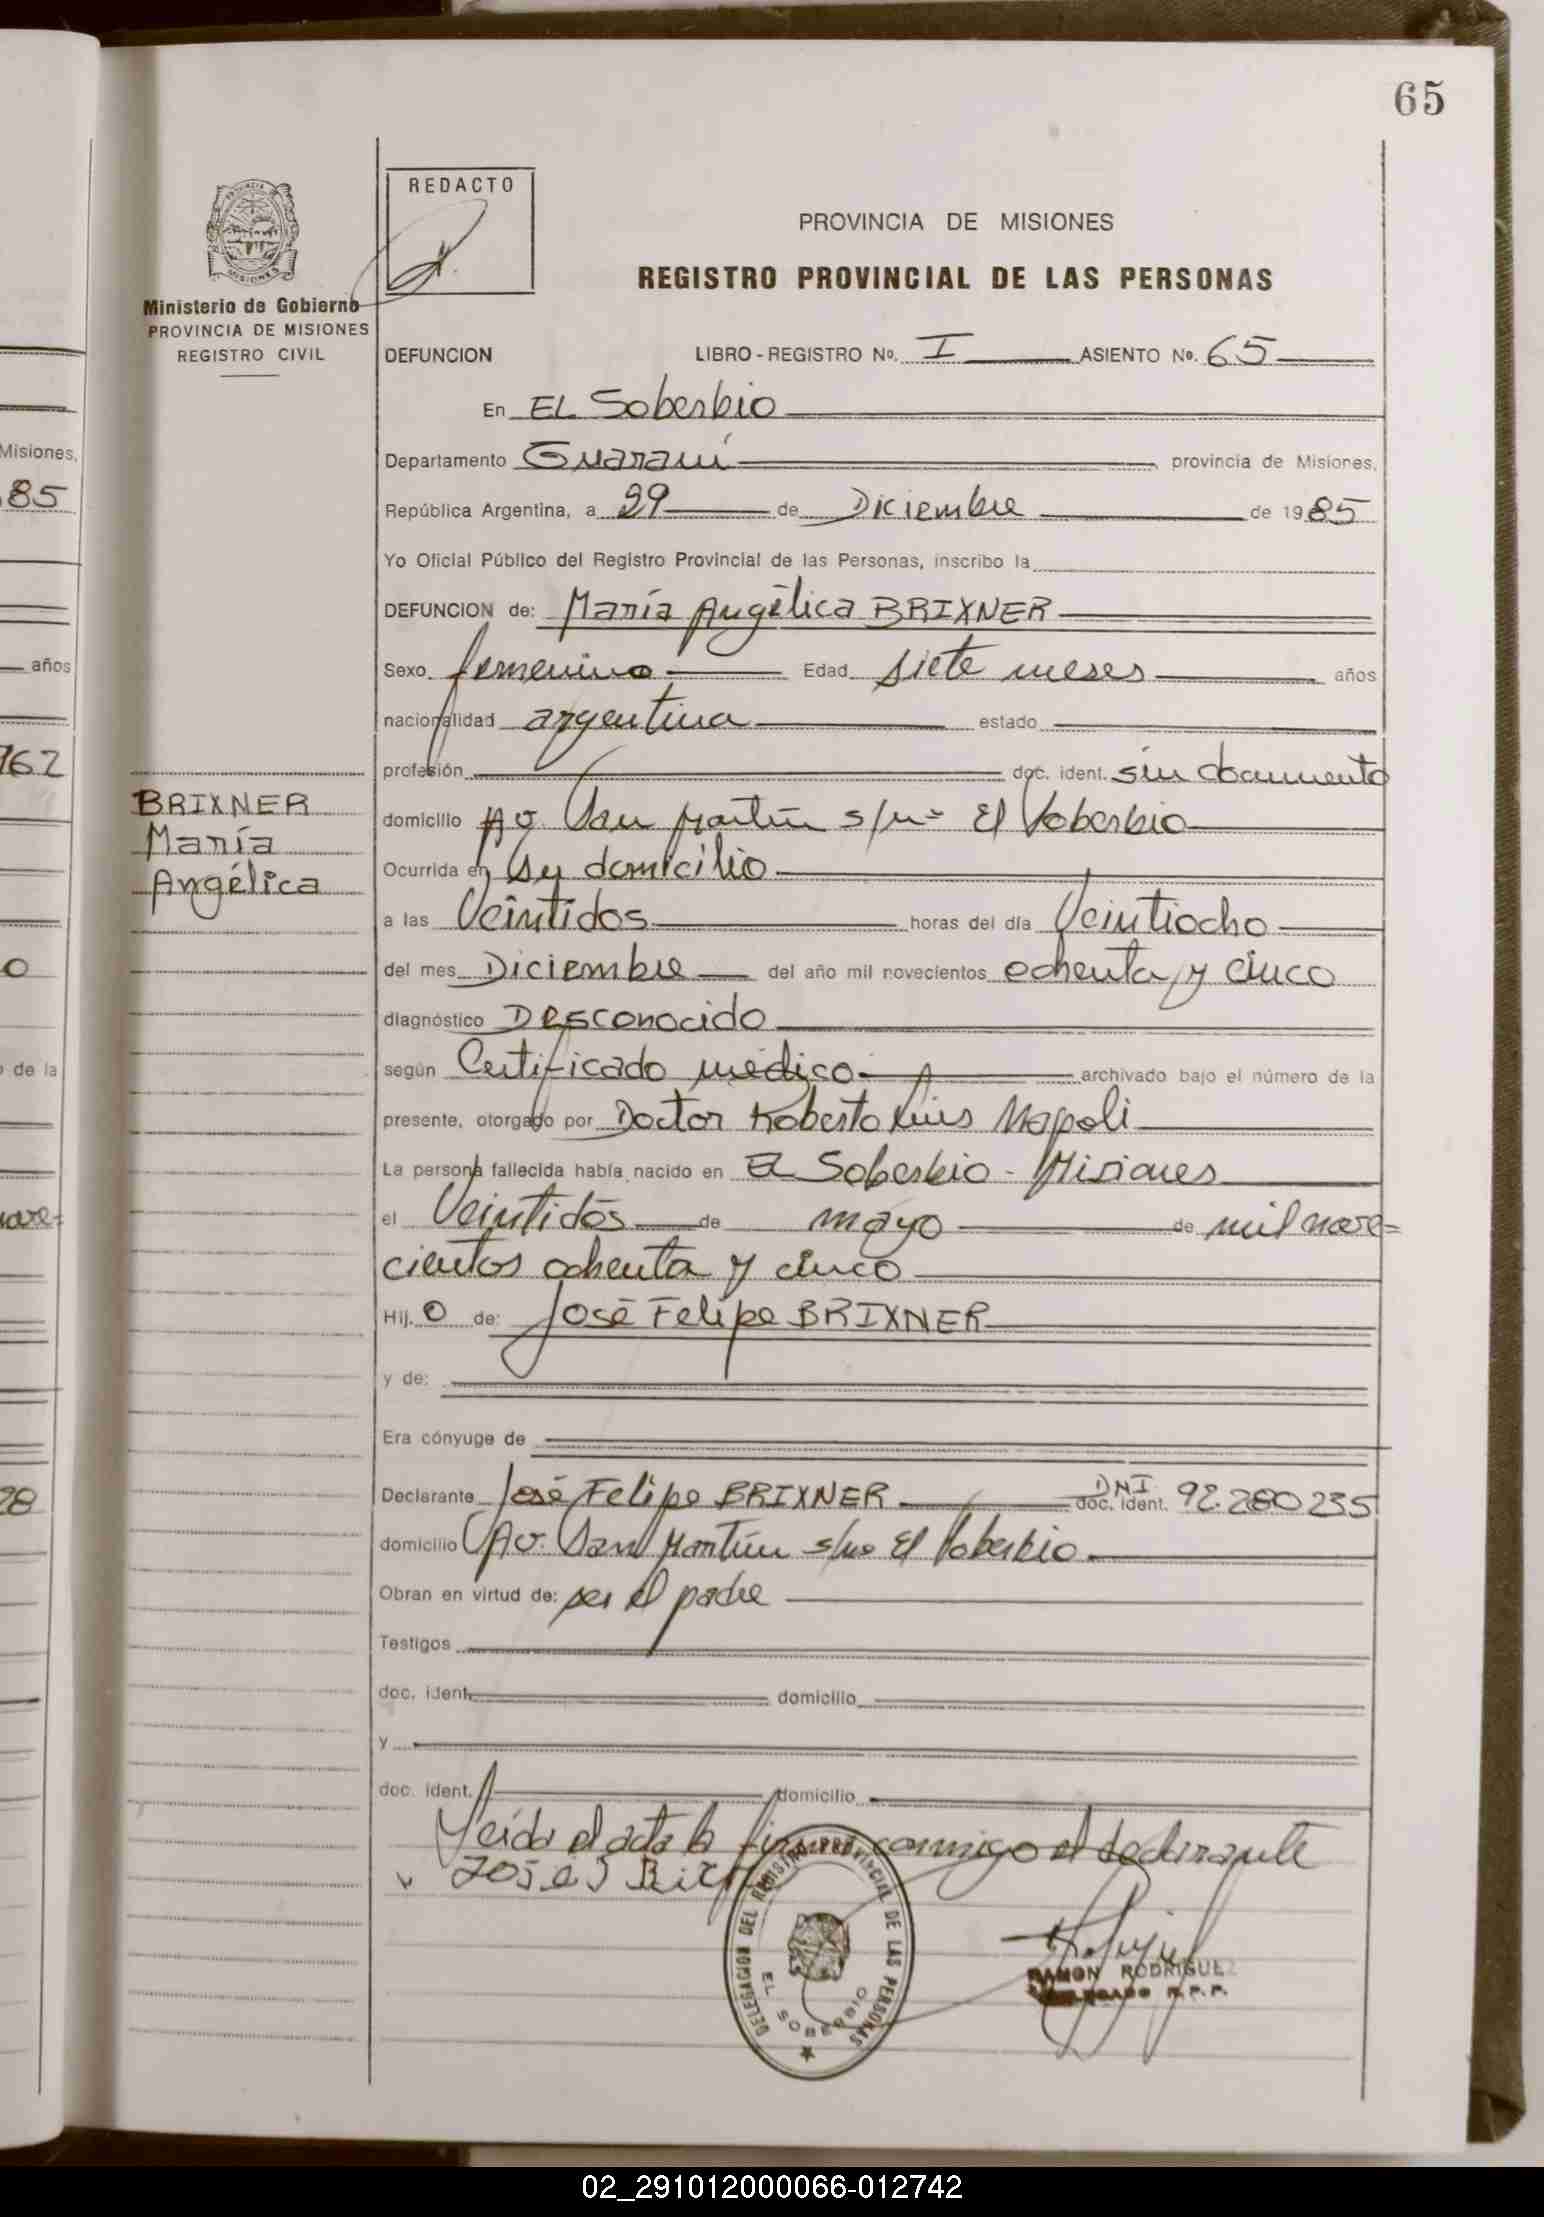 65
REDACTO
PROVINCIA DE MISIONES
REGISTRO PROVINCIAL DE LAS PERSONAS
PROVINCIA DE
MISIONES
Ministerio de Gobierno
PROVINCIA DE MISIONES
REGISTRO CIVIL
DEFUNCION LIBRO - REGISTRO No. I ASIENTO No. 65
En EL Soberbio
Departamento Guaraní provincia de Misiones,
República Argentina, a 29 de Diciembre de 1985
Yo Oficial Público del Registro Provincial de las Personas, inscribo la
DEFUNCION de: María Angélica BRIXNER
Sexo femenino Edad siete meses años
nacionalidad argentina estado
profesión doc. ident. sin documento
domicilio Av. San Martín s/nº El Soberbio
Ocurrida en su domicilio
a las Veintidos horas del día Veintiocho
del mes Diciembre del año mil novecientos ochenta y cinco
diagnóstico Desconocido
según Certificado médico archivado bajo el número de la
presente, otorgado por Doctor Roberto Luis Napoli
La persona fallecida había nacido en EL Soberbio - Misiones
el Veintidós de mayo de mil nove=
cientos ochenta y cinco
Hij o de: José Felipe BRIXNER
y de:
Era cónyuge de
Declarante José Felipe BRIXNER DNI doc. ident. 92.280.235
domicilio Av. San Martín s/no El Soberbio
Obran en virtud de: ser el padre
Testigos
doc. ident. domicilio
y
doc. ident. domicilio
Leída el acta la firma conmigo el declarante
BRIXNER
María
Angélica
DELEGACION DEL REGISTRO PROVINCIAL DE LAS PERSONAS
EL SOBERBIO
RAMON RODRIGUEZ
DELEGADO R.P.P.
Misiones,
85
años
962
0
de la
nove=
28
02_291012000066-012742